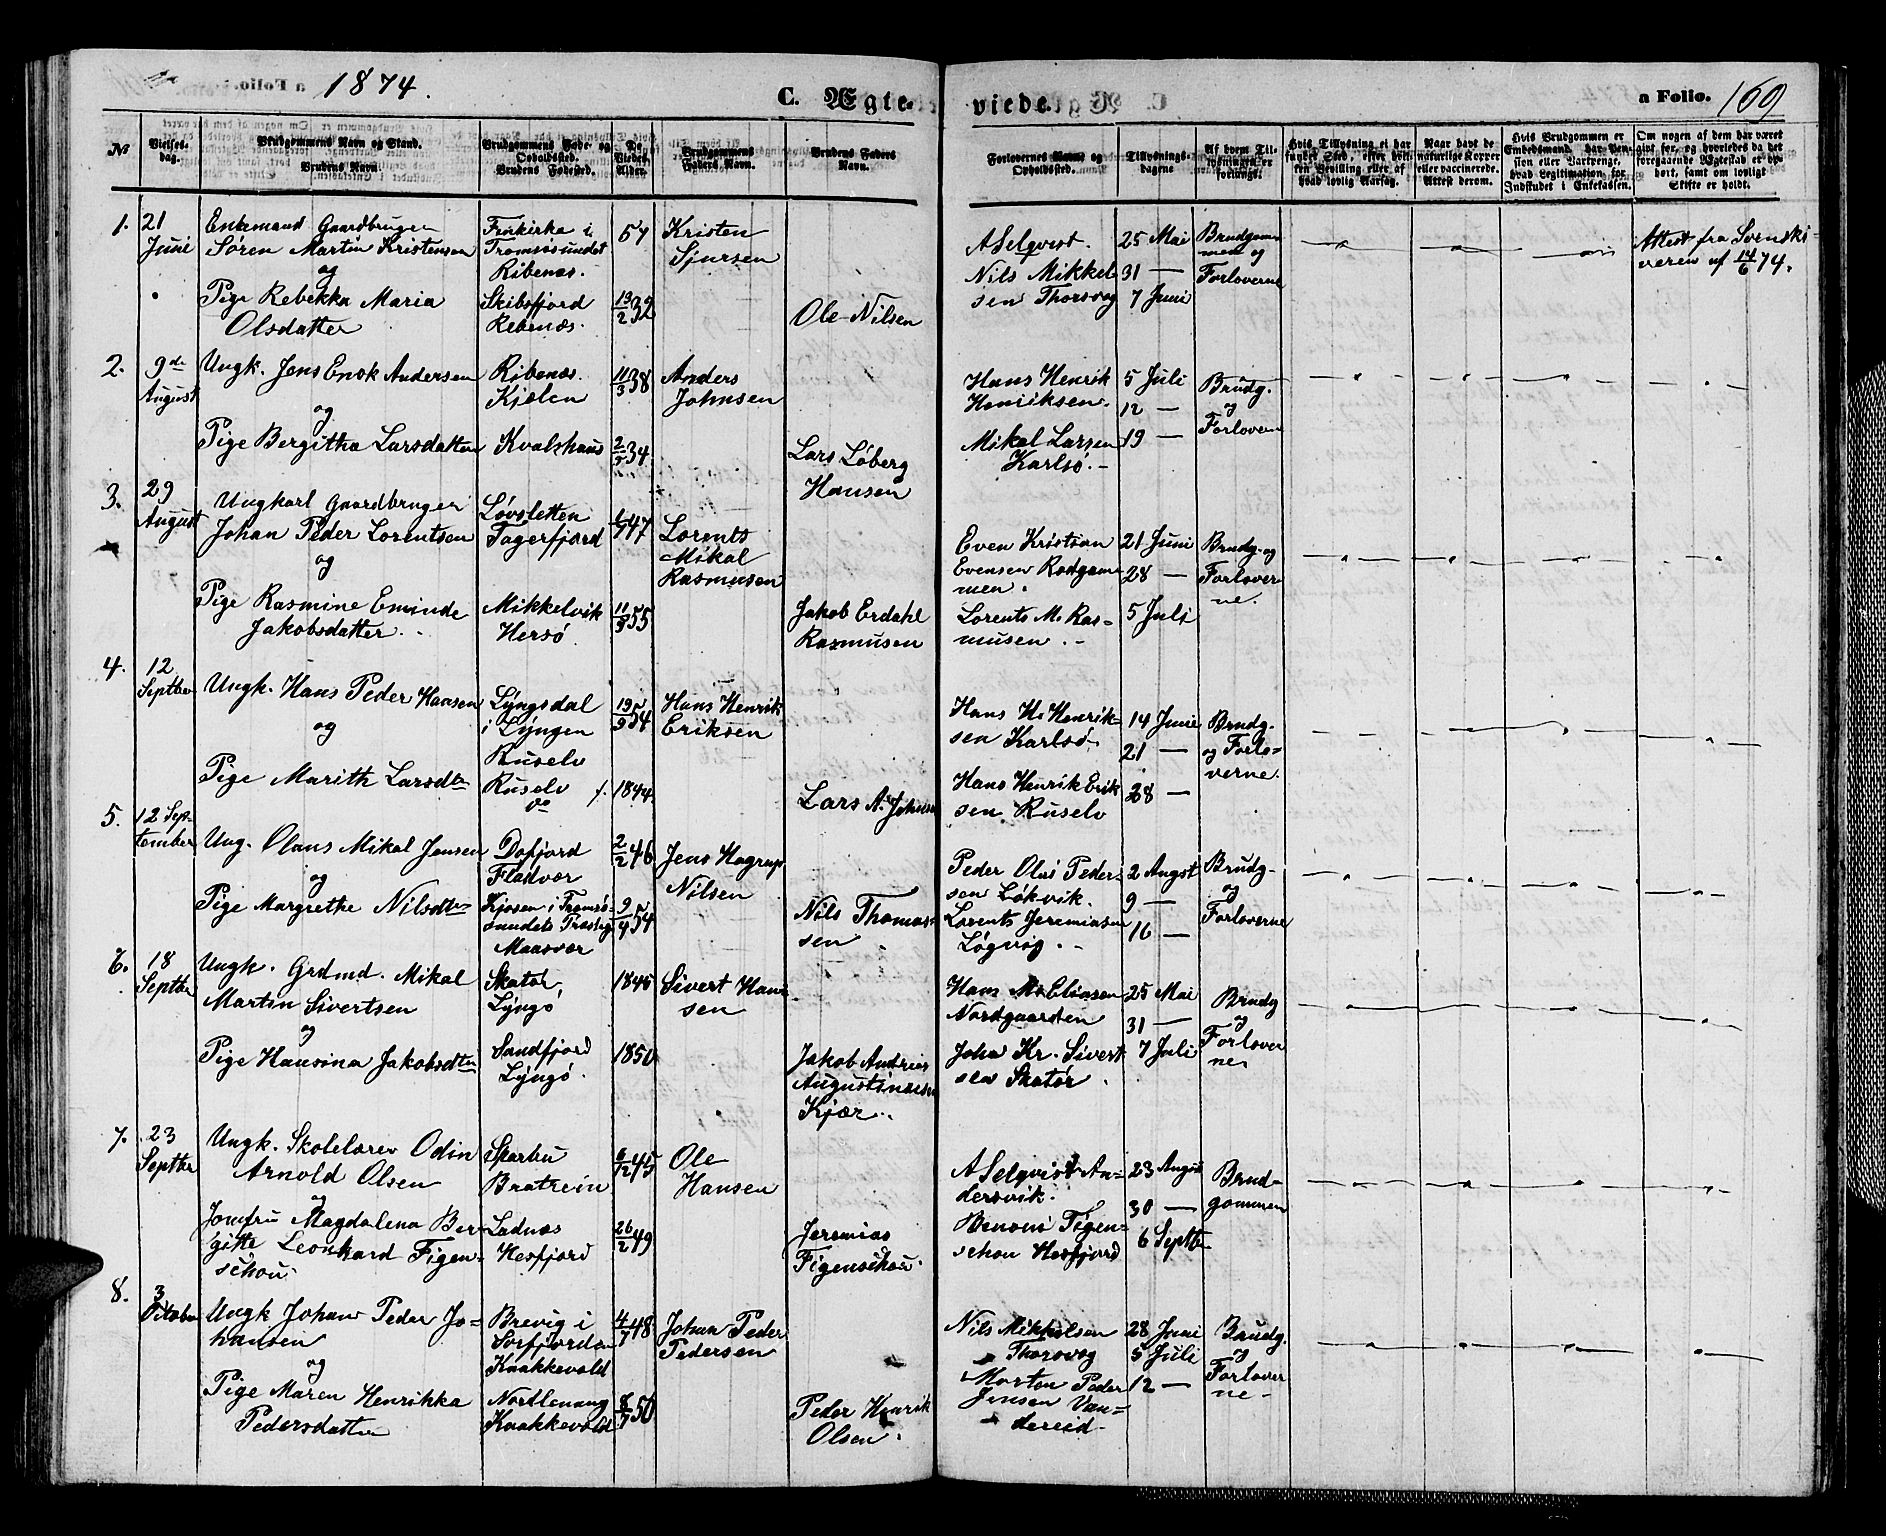 1874.
C. Ægte-
viede.
a Folio. 169
№
Vielses-
dag.
Brudgommens Navn og Stand.
Brudens Navn.
Brudgommens Føde- og
Opholdssted.
Brudens Fødested.
De
Viedes
Alder.
Brudgommens
Faders Navn.
Brudens Faders
Navn.
Forlovernes Navne og
Opholdssted.
Tillysnings-
dagene
Af hvem Til-
lysningen er
forlangt.
Hvis Tillysning ei har
fundet Sted, efter hvil-
ken Bevilling eller af
hvad lovlig Aarsag.
Naar havt de
naturlige Kopper
eller vaccinerede.
Attest derom.
Hvis Brudgommen er
Embedsmand, har Pen-
sion eller Vartpenge,
hvad Legitimation for
Indskudet i Enkekassen.
Om nogen af dem har været
gift før, og hvorledes da det
foregaaende Ægteskab er op-
hørt, samt om lovligt
Skifte er holdt.
1. 21
Juni
Enkemand Gaardbruger
Søren Martin Kristensen
og
Pige Rebekka Maria
Olsdatter
Tromsøsundet
Ribenæs.
Skibsfjord
Rebenæs.
57
13/2 32
Kristen
Sjursen
Ole Nilsen
A Selqvist.
Nils Mikkel-
sen Thorsvog
25 Mai
31 —
7 Juni
Brudgom-
men og
Forloverne
Attest fra
af 14/6 74.
2. 9de
August
Ungk. Jens Enok Andersen
og
Pige Bergitha Larsdatter
Ribenæs.
Kjølen
Kvalshaus
11/3 38
2/5 34
Anders
Johnsen
Lars Løberg
Hansen
Hans Henrik
Henriksen.
Mikal Larsen
Karlsø.
5 Juli
12 —
19 —
Brudg.
og
Forlovern
3. 29
August
Ungkarl Gaardbruger
Johan Peder Lorentsen
og
Pige Rasmine Eminde
Jakobsdatter.
Løvsletten
Fagerfjord
Mikkelvik
Hersø
47
11/3 55
Lorents
Mikal
Rasmusen
Jakob Erdahl
Rasmusen
Even Kristian
Evensen Rødgam-
men.
Lorents M. Ras-
musen.
21 Juni
28 —
5 Juli
Brudg. og
Forlover-
ne.
4. 12
Septber
Ungk. Hans Peder Hansen
og
Pige Marith Larsdtr
Lyngsdal
i Lyngen
Ruselv
Ruselv
do
19/9 54
f. 1844
Hans Henrik
Eriksen
Lars A. Johnsen
Hans H. Henrik-
sen Karlsø
Hans Henrik Erik
sen Ruselv
14 Juni
21 —
28 —
Brudg.
og Forlo-
verne
5. 12 Sep-
tember
Ung. Olaus Mikal Jensen
og
Pige Margrethe Nilsdtr
Dafjord
Fladvær
Kjosen i Tromsø-
sundets Præstegj
Maasvær
2/2 46
9/4 54
Jens Hagrup
Nilsen
Nils Thomas-
sen
Peder Olai Peder-
sen Løkvik.
Lorents Jeremiasen
Løgvig.
2 Augst
9 —
16 —
Brudg-
og
Forloverne
6. 18
Septber
Ungk. Grdmd. Mikal
Martin Sivertsen
og
Pige Hansina Jakobsdtr
Skatør
Lyngø
Sandfjord
Lyngø.
1845
1850
Sivert Han-
sen
Jakob Andreas
Augustinusen
Kjær.
Hans M. Eliasen
Nordgaarden
Johan Kr. Sivert
sen Skatør.
25 Mai
31 —
7 Juli
Brudg
og
Forlover
ne
7. 23
Septber
Ungk. Skolelærer Odin
Arnold Olsen
og
Jomfru Magdalena Ber-
gitte Leonhard Figen-
schou.
Sparbu
Bratrein
Ladnæs
Hesfjord
6/12 45
26/2 49
Ole
Hansen
Jeremias
Figenschou.
A Selqvist An-
dersvik.
Benoni Figen-
schou Hesfjord
23 Augst
30 —
6 Septbr
Brud-
gommen
8. 3
Oktober
Ungk Johan Peder Jo-
hansen
og
Pige Maren Henrikka
Pedersdatter
Brevig i
Sørfjorden
Kaakkevold
Nordlenang
Kaakkevold
4/7 48
8/7 50
Johan Peder
Pedersen
Peder Henrik
Olsen.
Nils Mikkelsen
Thorsvog
Morten Peder
Jensen Van-
dereid.
28 Juni
5 Juli
12 —
Brudg.
og
Forlover
ne